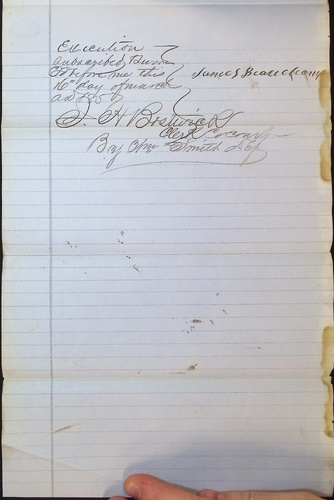 Execution
Subscribed & Sworn
to before me this James Beauchamp
16" day of march
AD 185
S. H. Bostwick
Clerk Co court
By Wm Smith Dep